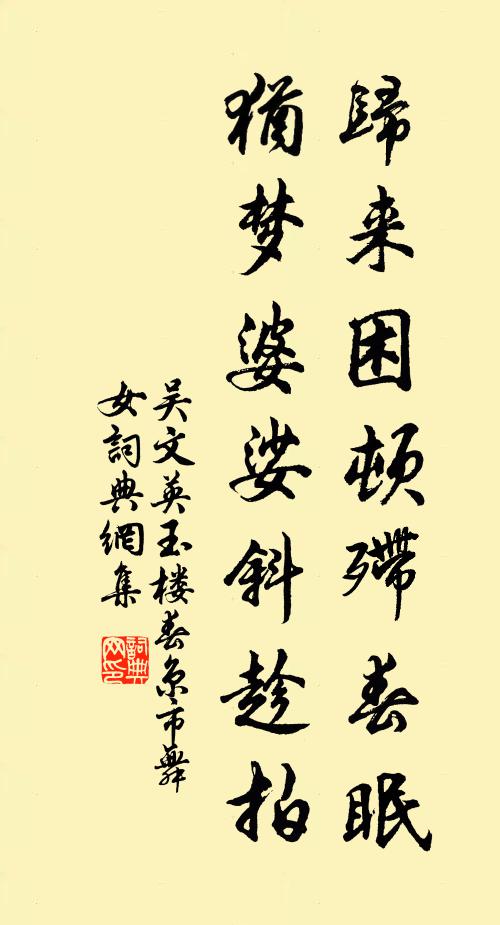 歸来困顿殢春眠
猶梦婆娑斜趁拍
吴文英玉楼春京市舞
女詞典網集
詞典網印